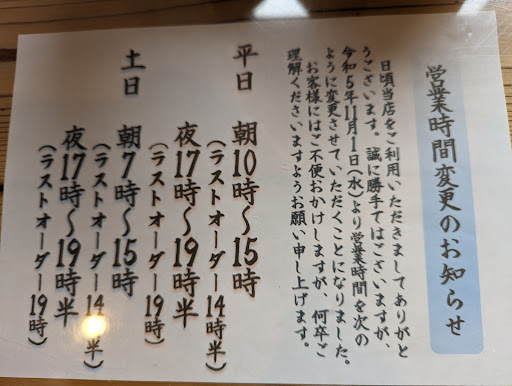 営業時間変更のお知らせ
日頃当店をご利用いただきましてありがと
うございます。誠に勝手てはございますが、
令和5年11月1日(水)より営業時間を次の
ように変更させていただくことになりました。
お客様にはご不便おかけしますが、何卒ご
理解くださいますようお願い申し上げます。
平日 朝10時〜15時
(ラストオーダー14時半)
夜17時〜19時半
(ラストオーダー19時)
土日 朝7時〜15時
(ラストオーダー14時半)
夜17時〜19時半
(ラストオーダー19時)